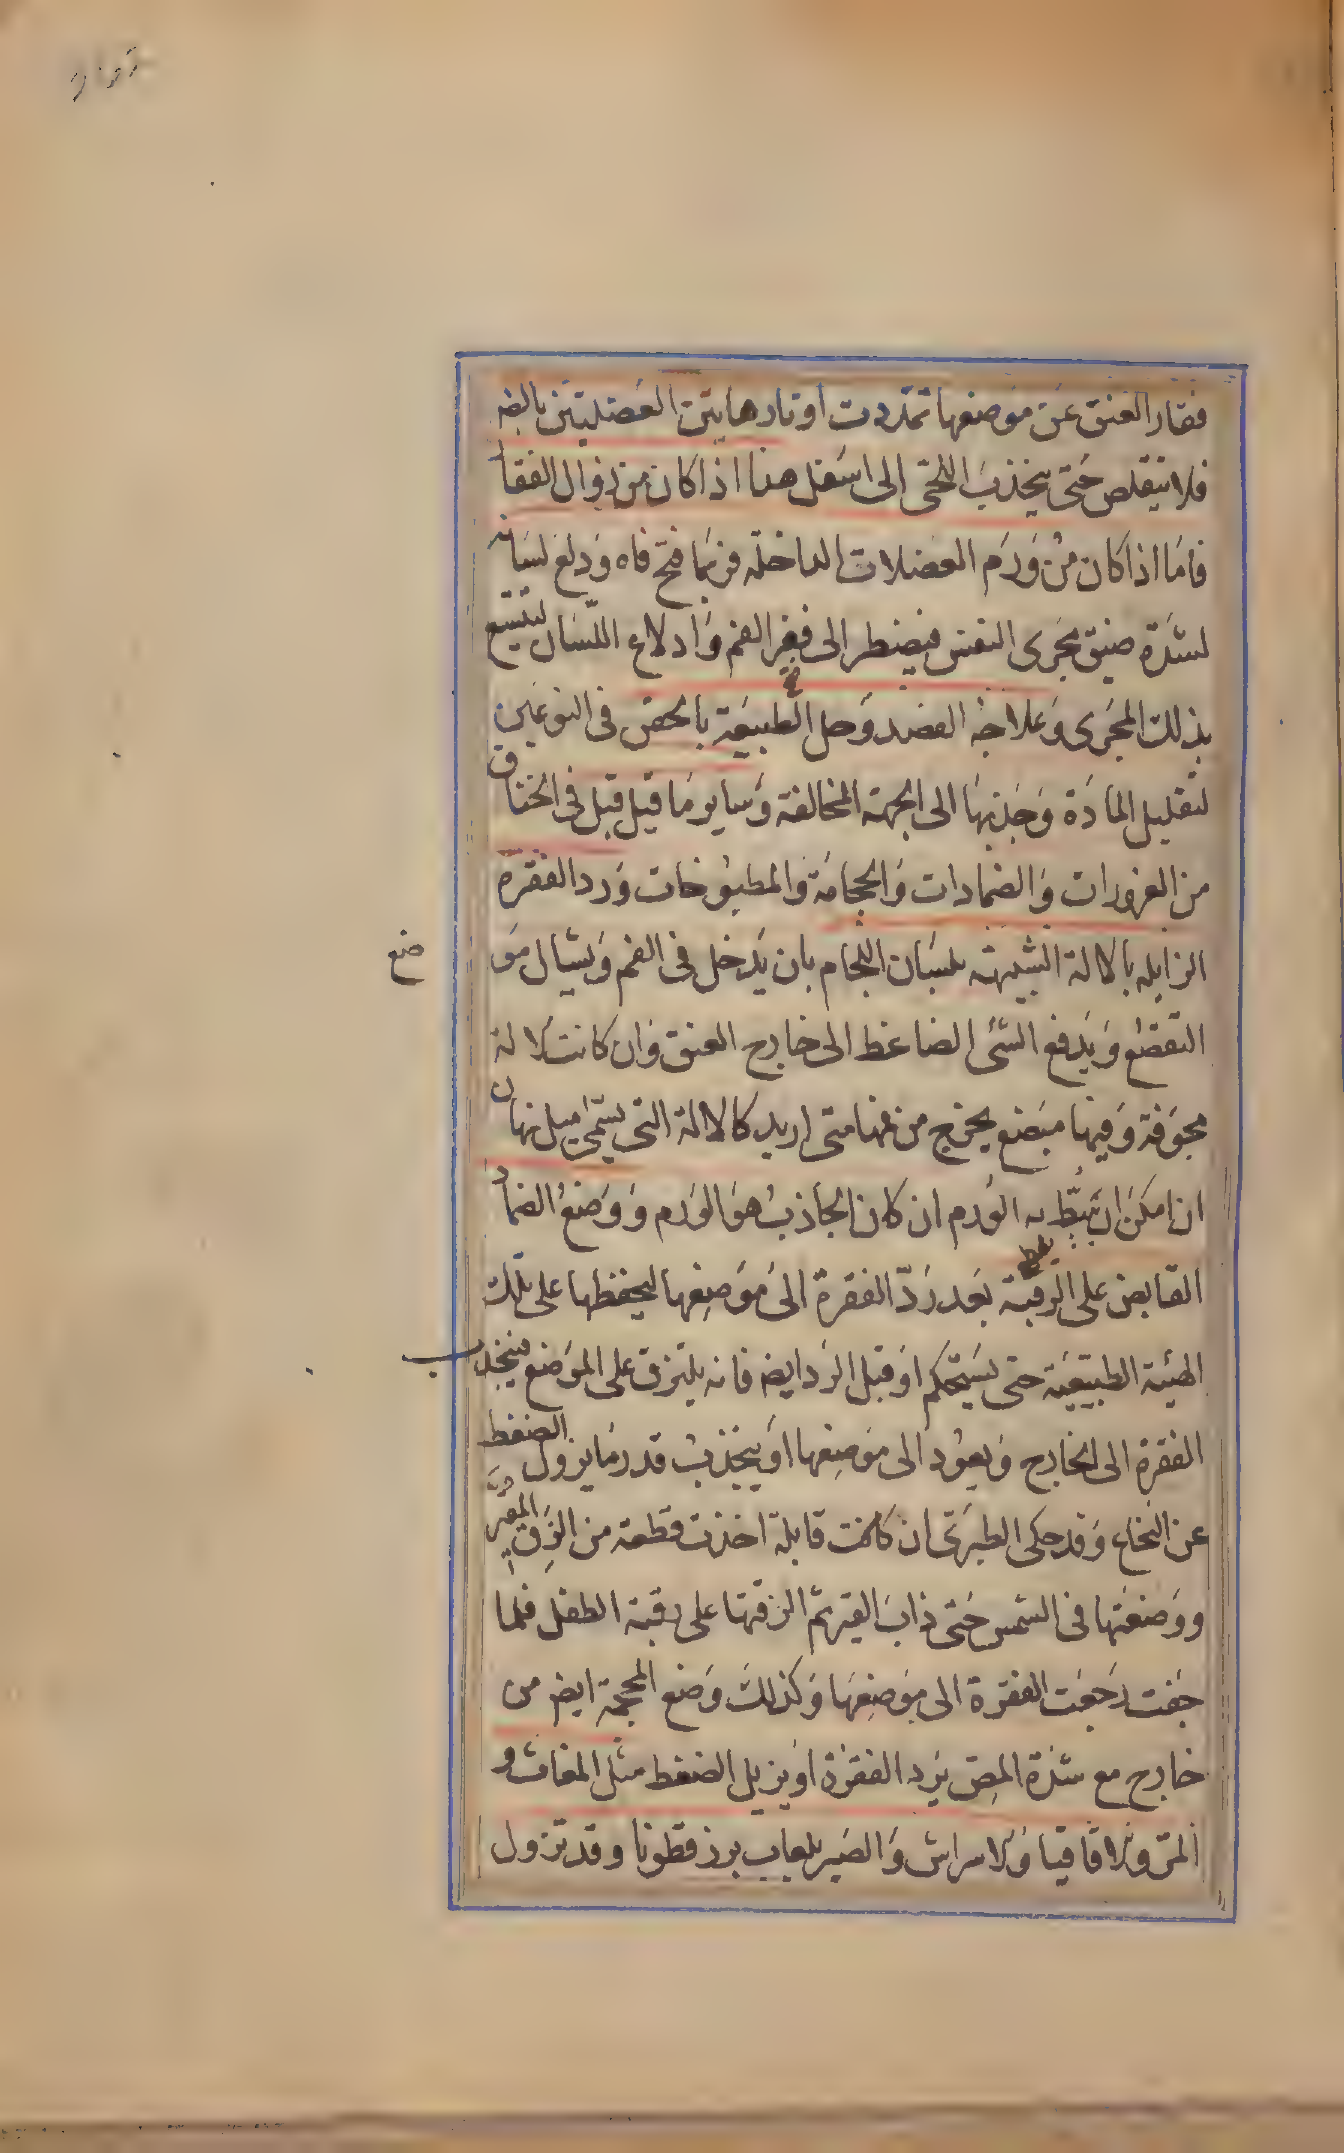 فقار العنق عن موضعها تمددت اوتار هاتين العضليتين بالضه
فلا تتقلص حتى ينجذب اللحى الى اسفل هذا اذا كان من زوال الفقا
فاما اذا كان من ورم العضلات الداخلة فربما فتح فاه ودلع لسانه
لشدة ضيق مجرى النفس فيضطر الى فغر الفم وادلاع اللسان ليتسع
بذلك المجرى وعلاجه الفصد وحل الطبيعة بالحقن فى النوعين
لتقليل المادة وجذبها الى الجهة المخالفة وساير ما قيل قبل فى الخناق
من الغرورات والضمادات والحجامة والمطبوخات ورد الفقرة
الزايله بالالة الشبيهة بلسان اللجام بان يدخل فى الفم ويشال مو
ضع
التقصع ويدفع الشئ الضاغط الى خارج العنق وان كانت الالة
مجوفة وفيها مبضع يخرج من فمها متى اريد كالالة التى يسمى ميل نهان
ان امكن ان يبط به الورم ان كان الجاذب هو الورم ووضع الضماد
القابض على الرقبة بعد رد الفقرة الى موضعها ليحفظها على تلك
الهيئة الطبيعية حتى يستحكم او قبل الرد ايضا فانه يلتزق على الموضع فينجذب
الفقرة الى الخارج ويعود الى موضعها او ينجذب قدر ما يزول الضغط
عن النخاع وقد حكى الطبرى ان كانت قابلة اخذت قطعة من الزق المقير
ووضعتها فى الشمس حتى ذاب القير ثم الزقتها على رقبة الطفل فلما
جفت رجعت الفقرة الى موضعها وكذلك وضع المحجمة ايضا من
خارج مع شدة المص يرد الفقرة او يزيل الضغط مثل المغاث و
المر والاقاقيا والاسراش والصبر بلعاب بزر قطونا وقد تزول